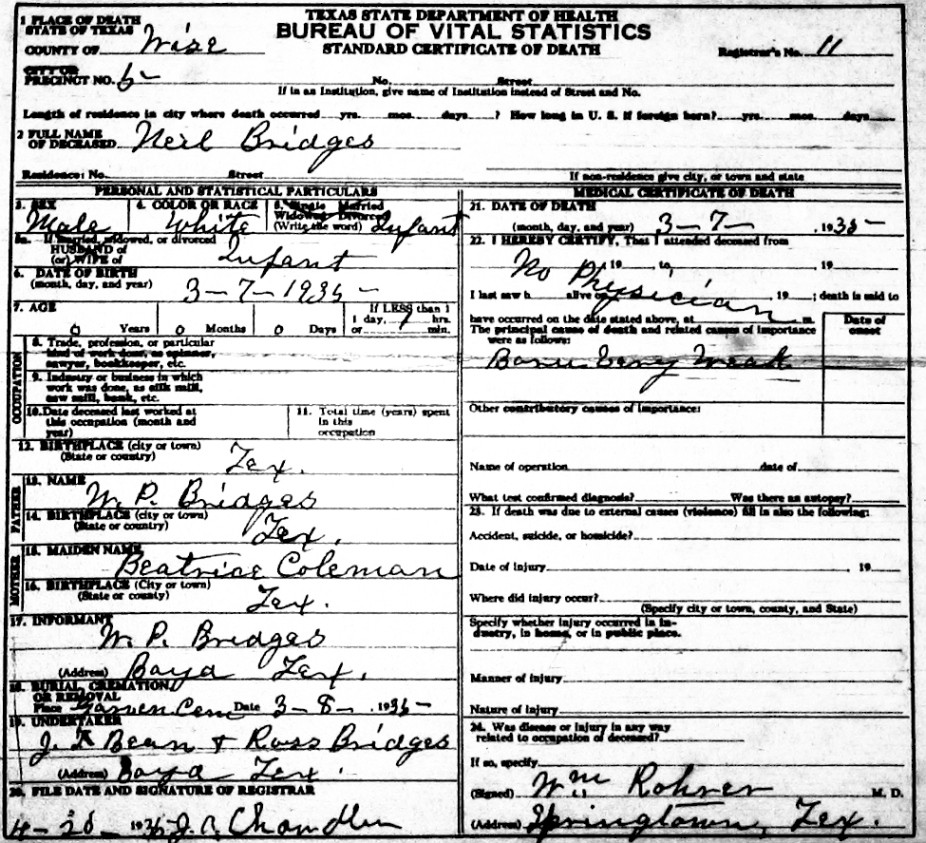 TEXAS STATE DEPARTMENT OF HEALTH
BUREAU OF VITAL STATISTICS
STANDARD CERTIFICATE OF DEATH
1 PLACE OF DEATH
STATE OF TEXAS
COUNTY OF Wise
Registrar's No. 11
CITY OR
PRECINCT NO. No. Street
If in an Institution, give name of Institution instead of Street and No.
Length of residence in city where death occurred yrs. mos. days ? How long in U. S. if foreign born? yrs. mos. days
2 FULL NAME
OF DECEASED Neil Bridges
Residence: No. Street If non-residence give city, or town and state
PERSONAL AND STATISTICAL PARTICULARS
3. SEX 4. COLOR OR RACE 5. Single Married
Widowed Divorced
(Write the word)
Male White Infant
5a. If married, widowed, or divorced
HUSBAND of
(or) WIFE of Infant
6. DATE OF BIRTH
(month, day, and year) 3-7-1935
7. AGE If LESS than 1
1 day, hrs.
0 Years 0 Months 0 Days or min.
OCCUPATION
8. Trade, profession, or particular
kind of work done, as spinner,
sawyer, bookkeeper, etc.
9. Industry or business in which
work was done, as silk mill,
saw mill, bank, etc.
10. Date deceased last worked at
this occupation (month and
year)
11. Total time (years) spent
in this
occupation
12. BIRTHPLACE (city or town)
(State or country) Tex.
FATHER
13. NAME
W. P. Bridges
14. BIRTHPLACE (city or town)
(State or country) Tex.
MOTHER
15. MAIDEN NAME
Beatrice Coleman
16. BIRTHPLACE (City or town)
(State or country) Tex.
17. INFORMANT
W. P. Bridges
(Address) Boyd Tex.
18. BURIAL, CREMATION
OR REMOVAL
Place Garven Cem Date 3-8-1935
19. UNDERTAKER
Bean & Ross Bridges
(Address) Boyd Tex.
20. FILE DATE AND SIGNATURE OF REGISTRAR
Chandler
MEDICAL CERTIFICATE OF DEATH
21. DATE OF DEATH
(month, day, and year) 3-7-, 1935
22. I HEREBY CERTIFY, That I attended deceased from
19 , to, 19
No Physician
I last saw h alive on , 19 ; death is said to
have occurred on the date stated above, at m.
The principal cause of death and related causes of importance
were as follows:
Date of
onset
Weak
Other contributory causes of importance:
Name of operation date of
What test confirmed diagnosis? Was there an autopsy?
23. If death was due to external causes (violence) fill in also the following:
Accident, suicide, or homicide?
Date of injury , 19
Where did injury occur?
(Specify city or town, county, and State)
Specify whether injury occurred in in-
dustry, in home, or in public place.
Manner of injury
Nature of injury
24. Was disease or injury in any way
related to occupation of deceased?
If so, specify
(Signed) Wm Rohrer M. D.
(Address) Springtown, Tex.